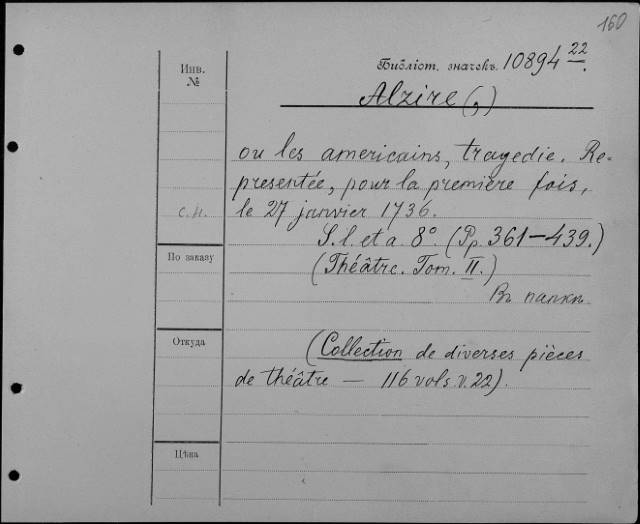 160
Инв.
№
Библіот. значекъ 10894 22.
Alzire (,)
ou les americains, tragedie. Re-
presentée, pour la première fois,
с.н.
le 27 janvier 1736.
S. l. et a. 8° (Pp. 361—439.)
По заказу
(Théâtre. Tom. II.)
Въ папкѣ
Откуда
(Collection de diverses pièces
de théâtre — 116 vols v. 22).
Цѣна